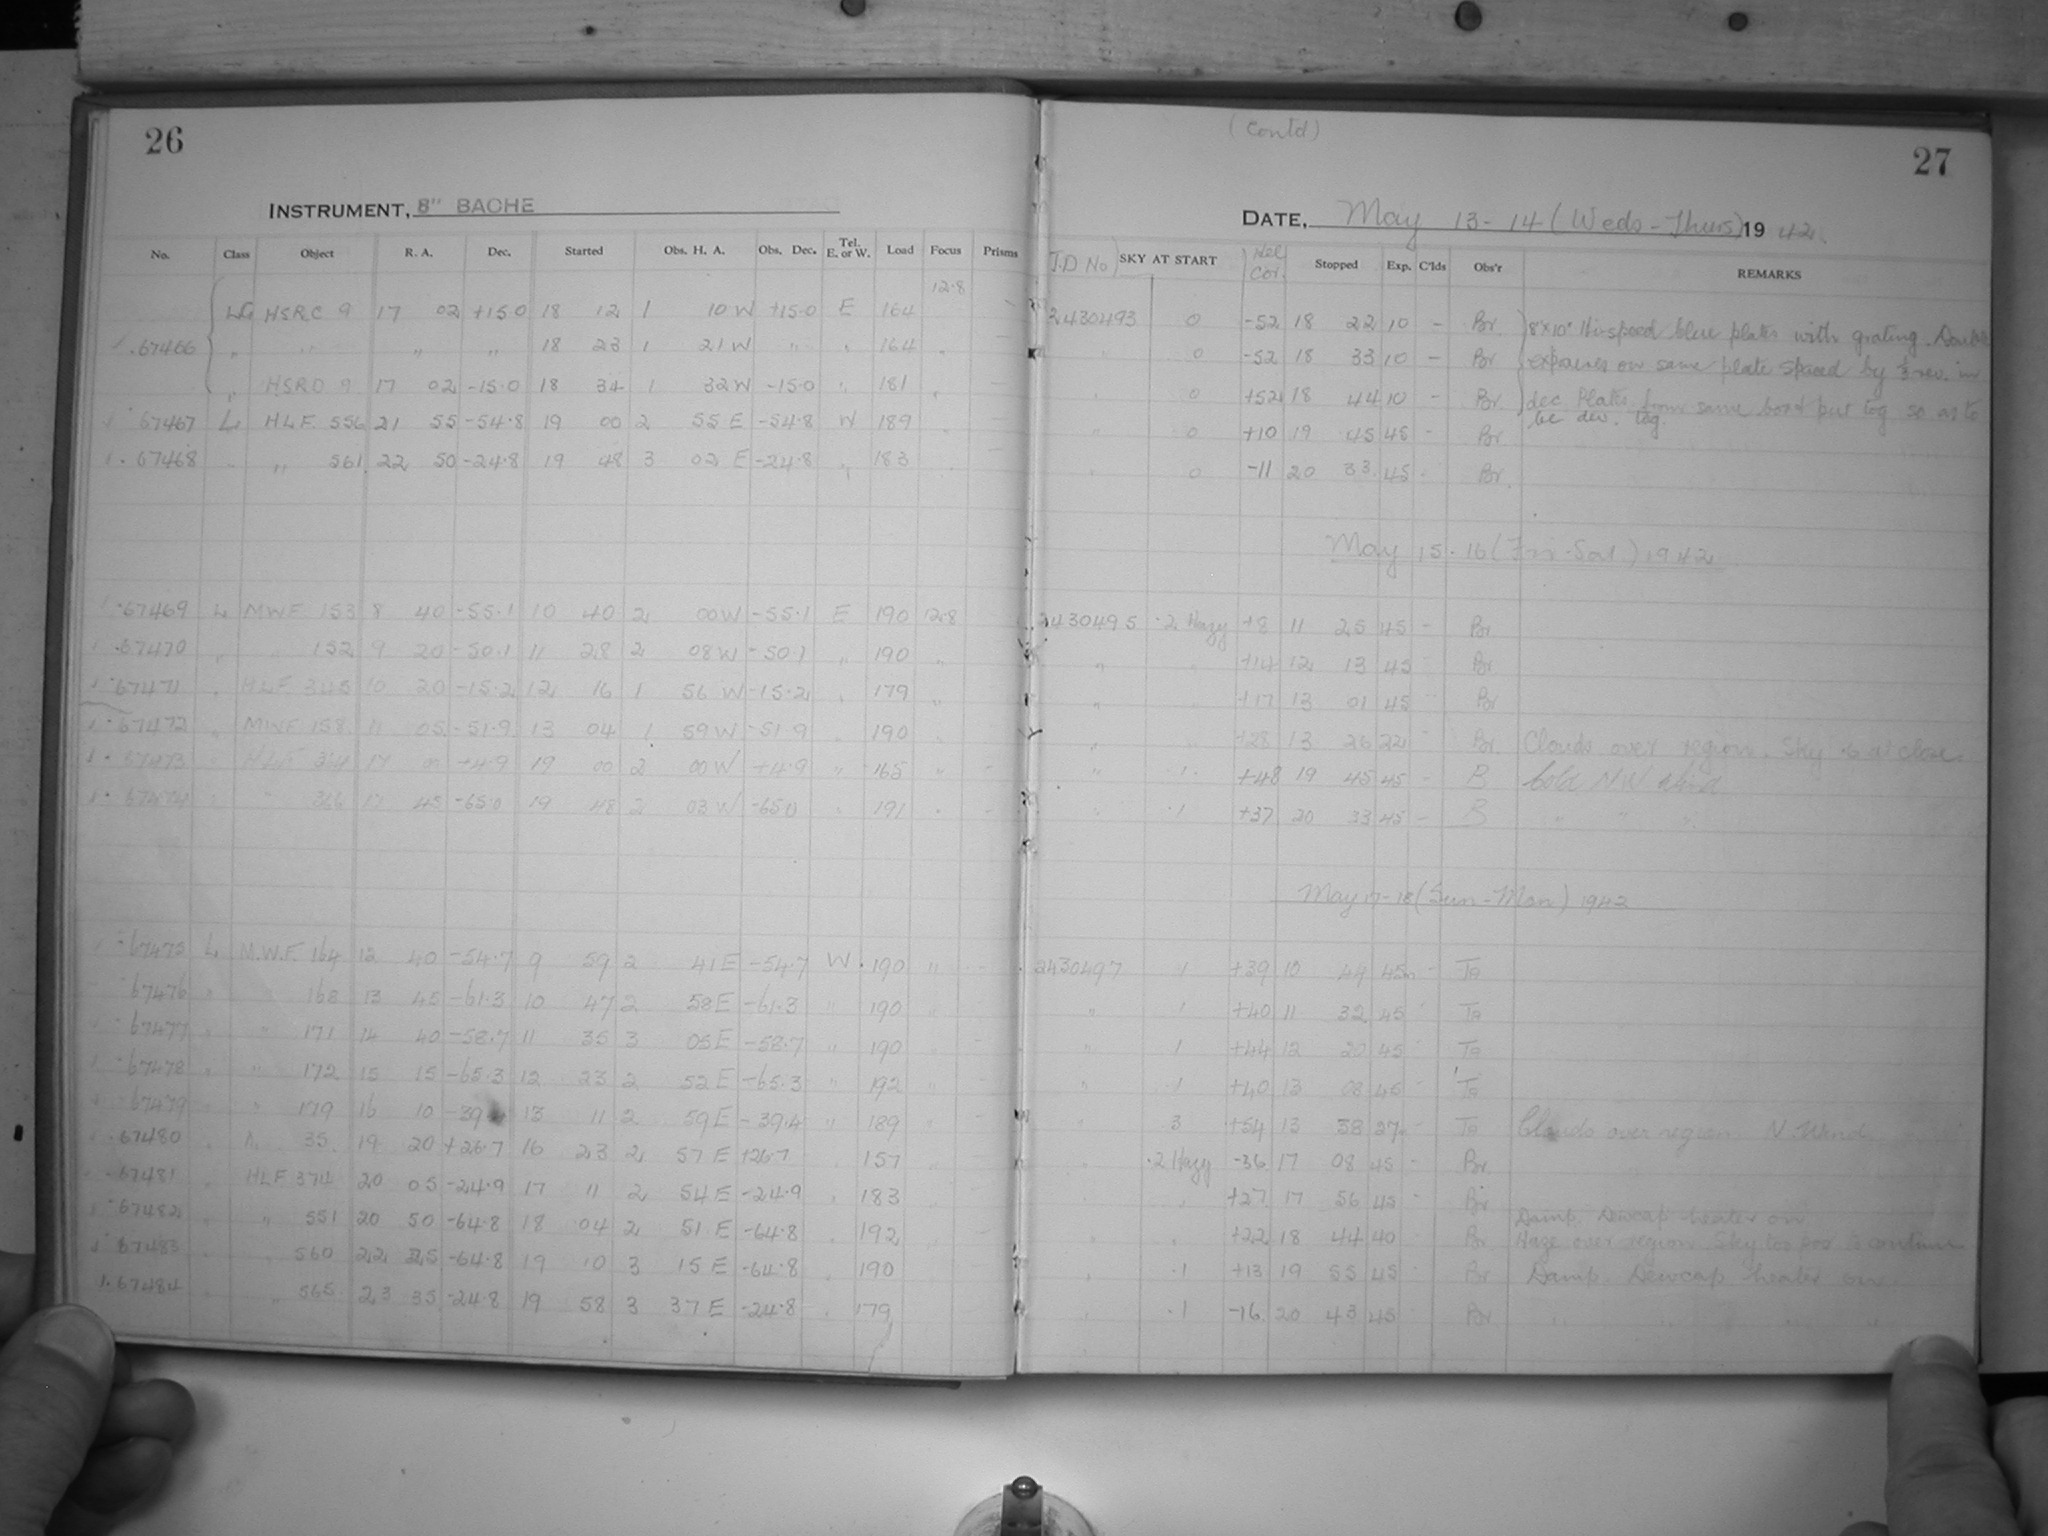 26
INSTRUMENT, 8" BACHE
No. Class Object R. A. Dec. Started Obs. H. A. Obs. Dec. Tel. E. or W. Load Focus Prisms
12.8
LG HSRC 9 17 02 +15.0 18 12 1 10 W +15.0 E 164
67466 " " " " 18 23 1 21 W " " 164 "
" HSRD 9 17 02 -15.0 18 34 1 32 W -15.0 " 181 "
67467 L HLF 556 21 55 -54.8 19 00 2 55 E -54.8 W 189
67468 " " 561 22 50 -24.8 19 48 3 02 E -24.8 " 183
67469 L MWF 153 8 40 -55.1 10 40 2 00 W -55.1 E 190 12.8
67470 " " 152 9 20 -50.1 11 28 2 08 W -50.1 " 190 "
67471 " HLF 345 10 20 -15.2 12 16 1 56 W -15.2 " 179 "
67472 " MWF 158 11 05 -51.9 13 04 1 59 W -51.9 " 190 "
67473 " HLF 17 +4.9 19 00 2 00 W +4.9 " 165 "
67474 " " 366 17 45 -65.0 19 48 2 03 W -65.0 " 191 "
L M.W.F. 164 12 40 -54.7 9 59 2 41 E -54.7 W 190 "
67476 " " 168 13 45 -61.3 10 47 2 58 E -61.3 " 190 "
67477 " " 171 14 40 -58.7 11 35 3 05 E -58.7 " 190 "
67478 " " 172 15 15 -65.3 12 23 2 52 E -65.3 " 192 "
67479 " " 179 16 10 -39.4 13 11 2 59 E -39.4 " 189 "
67480 35 19 20 +26.7 16 23 2 57 E +26.7 157
67481 HLF 374 20 05 -24.9 17 11 2 54 E -24.9 183
67482 " 551 20 50 -64.8 18 04 2 51 E -64.8 192
67483 " 560 22 25 -64.8 19 10 3 15 E -64.8 190
67484 " 565 23 35 -24.8 19 58 3 37 E -24.8 179
(Contd)
27
DATE, May 13-14 (Weds-Thurs) 1942.
J.D No SKY AT START Hel Cor. Stopped Exp. C'lds Obs'r REMARKS
2430493 0 -52 18 22 10 - Br. 8"x10" Hi-speed blue plates with grating. Double
" 0 -52 18 33 10 - Br exposures on same plate spaced by rev. in
" 0 +52 18 44 10 - Br. dec. Plates from same box & put tog so as to
be dev. tog.
" 0 +10 19 45 45 - Br
" 0 -11 20 33 45 - Br.
May 15-16 (Fri-Sat.) 1942
2430495 .2 Hazy +8 11 25 45 - Br
" " +14 12 13 45 Br
" " +17 13 01 45 Br
" " +28 13 26 22 Br. Clouds over region. Sky .6 at close.
" .1 +48 19 45 45 - B Cold NW wind
" .1 +37 20 33 45 - B " " "
May 17-18 (Sun-Mon) 1942
2430497 1 +39 10 44 45m - Ta
" 1 +40 11 32 45 Ta
" 1 +44 12 20 45 Ta
" 1 +40 13 08 45 Ta
" 3 +54 13 38 27 Ta Clouds over region N. Wind.
.2 Hazy -36 17 08 45 - Br
" +27 17 56 45 Br
Damp. Dewcap heater on
" +22 18 44 40 Br Haze over region Sky too poor to continue
" .1 +13 19 55 45 Br Damp. Dewcap heater on.
" .1 -16 20 43 45 Br " " " "